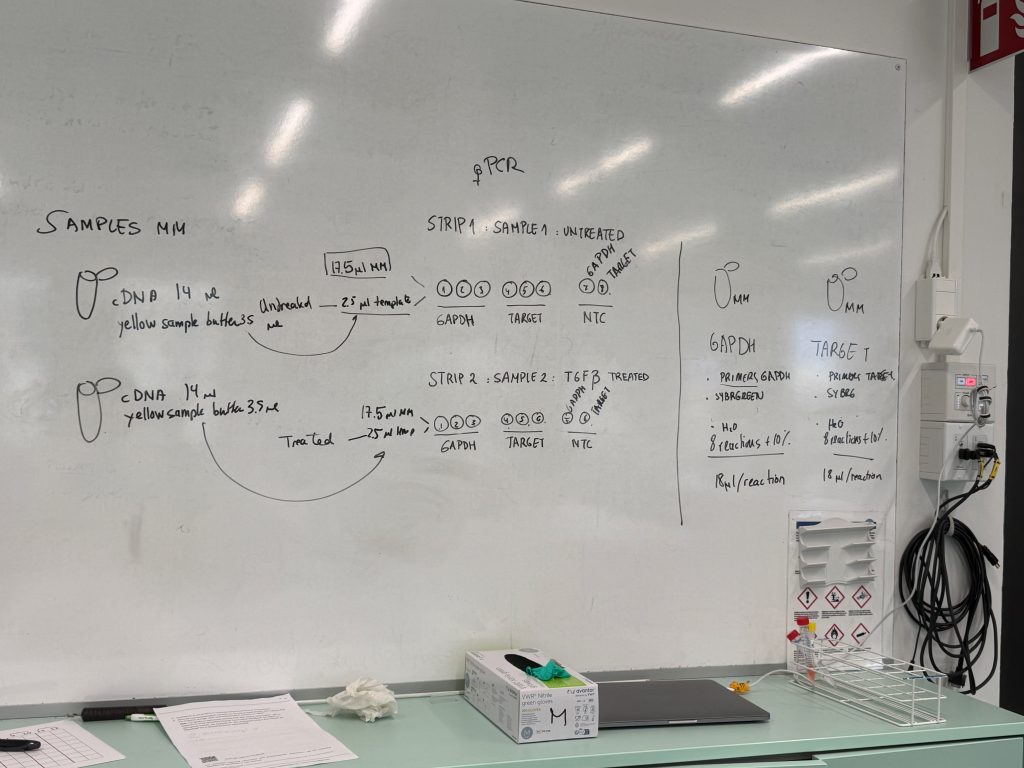 qPCR
SAMPLES MM
cDNA 14 µl
yellow sample buffer 3.5 µl
Untreated
17.5 µl MM
2.5 µl template
STRIP 1 : SAMPLE 1 : UNTREATED
1 2 3 4 5 6 7 8
GAPDH TARGET
GAPDH TARGET NTC
cDNA 14 µl
yellow sample buffer 3.5 µl
Treated
17.5 µl MM
STRIP 2 : SAMPLE 2 : TGFβ TREATED
1 2 3 4 5 6 7 8
GADPH TARGET
GAPDH TARGET NTC
MM
GAPDH
· PRIMERS GAPDH
· SYBRGREEN
· H2O
8 reactions + 10%
18 µl/reaction
MM
TARGET
· PRIMERS TARGET
· SYBRG
· H2O
8 reactions + 10%
18 µl/reaction
avantor
VWR® Nitrile
green gloves
M